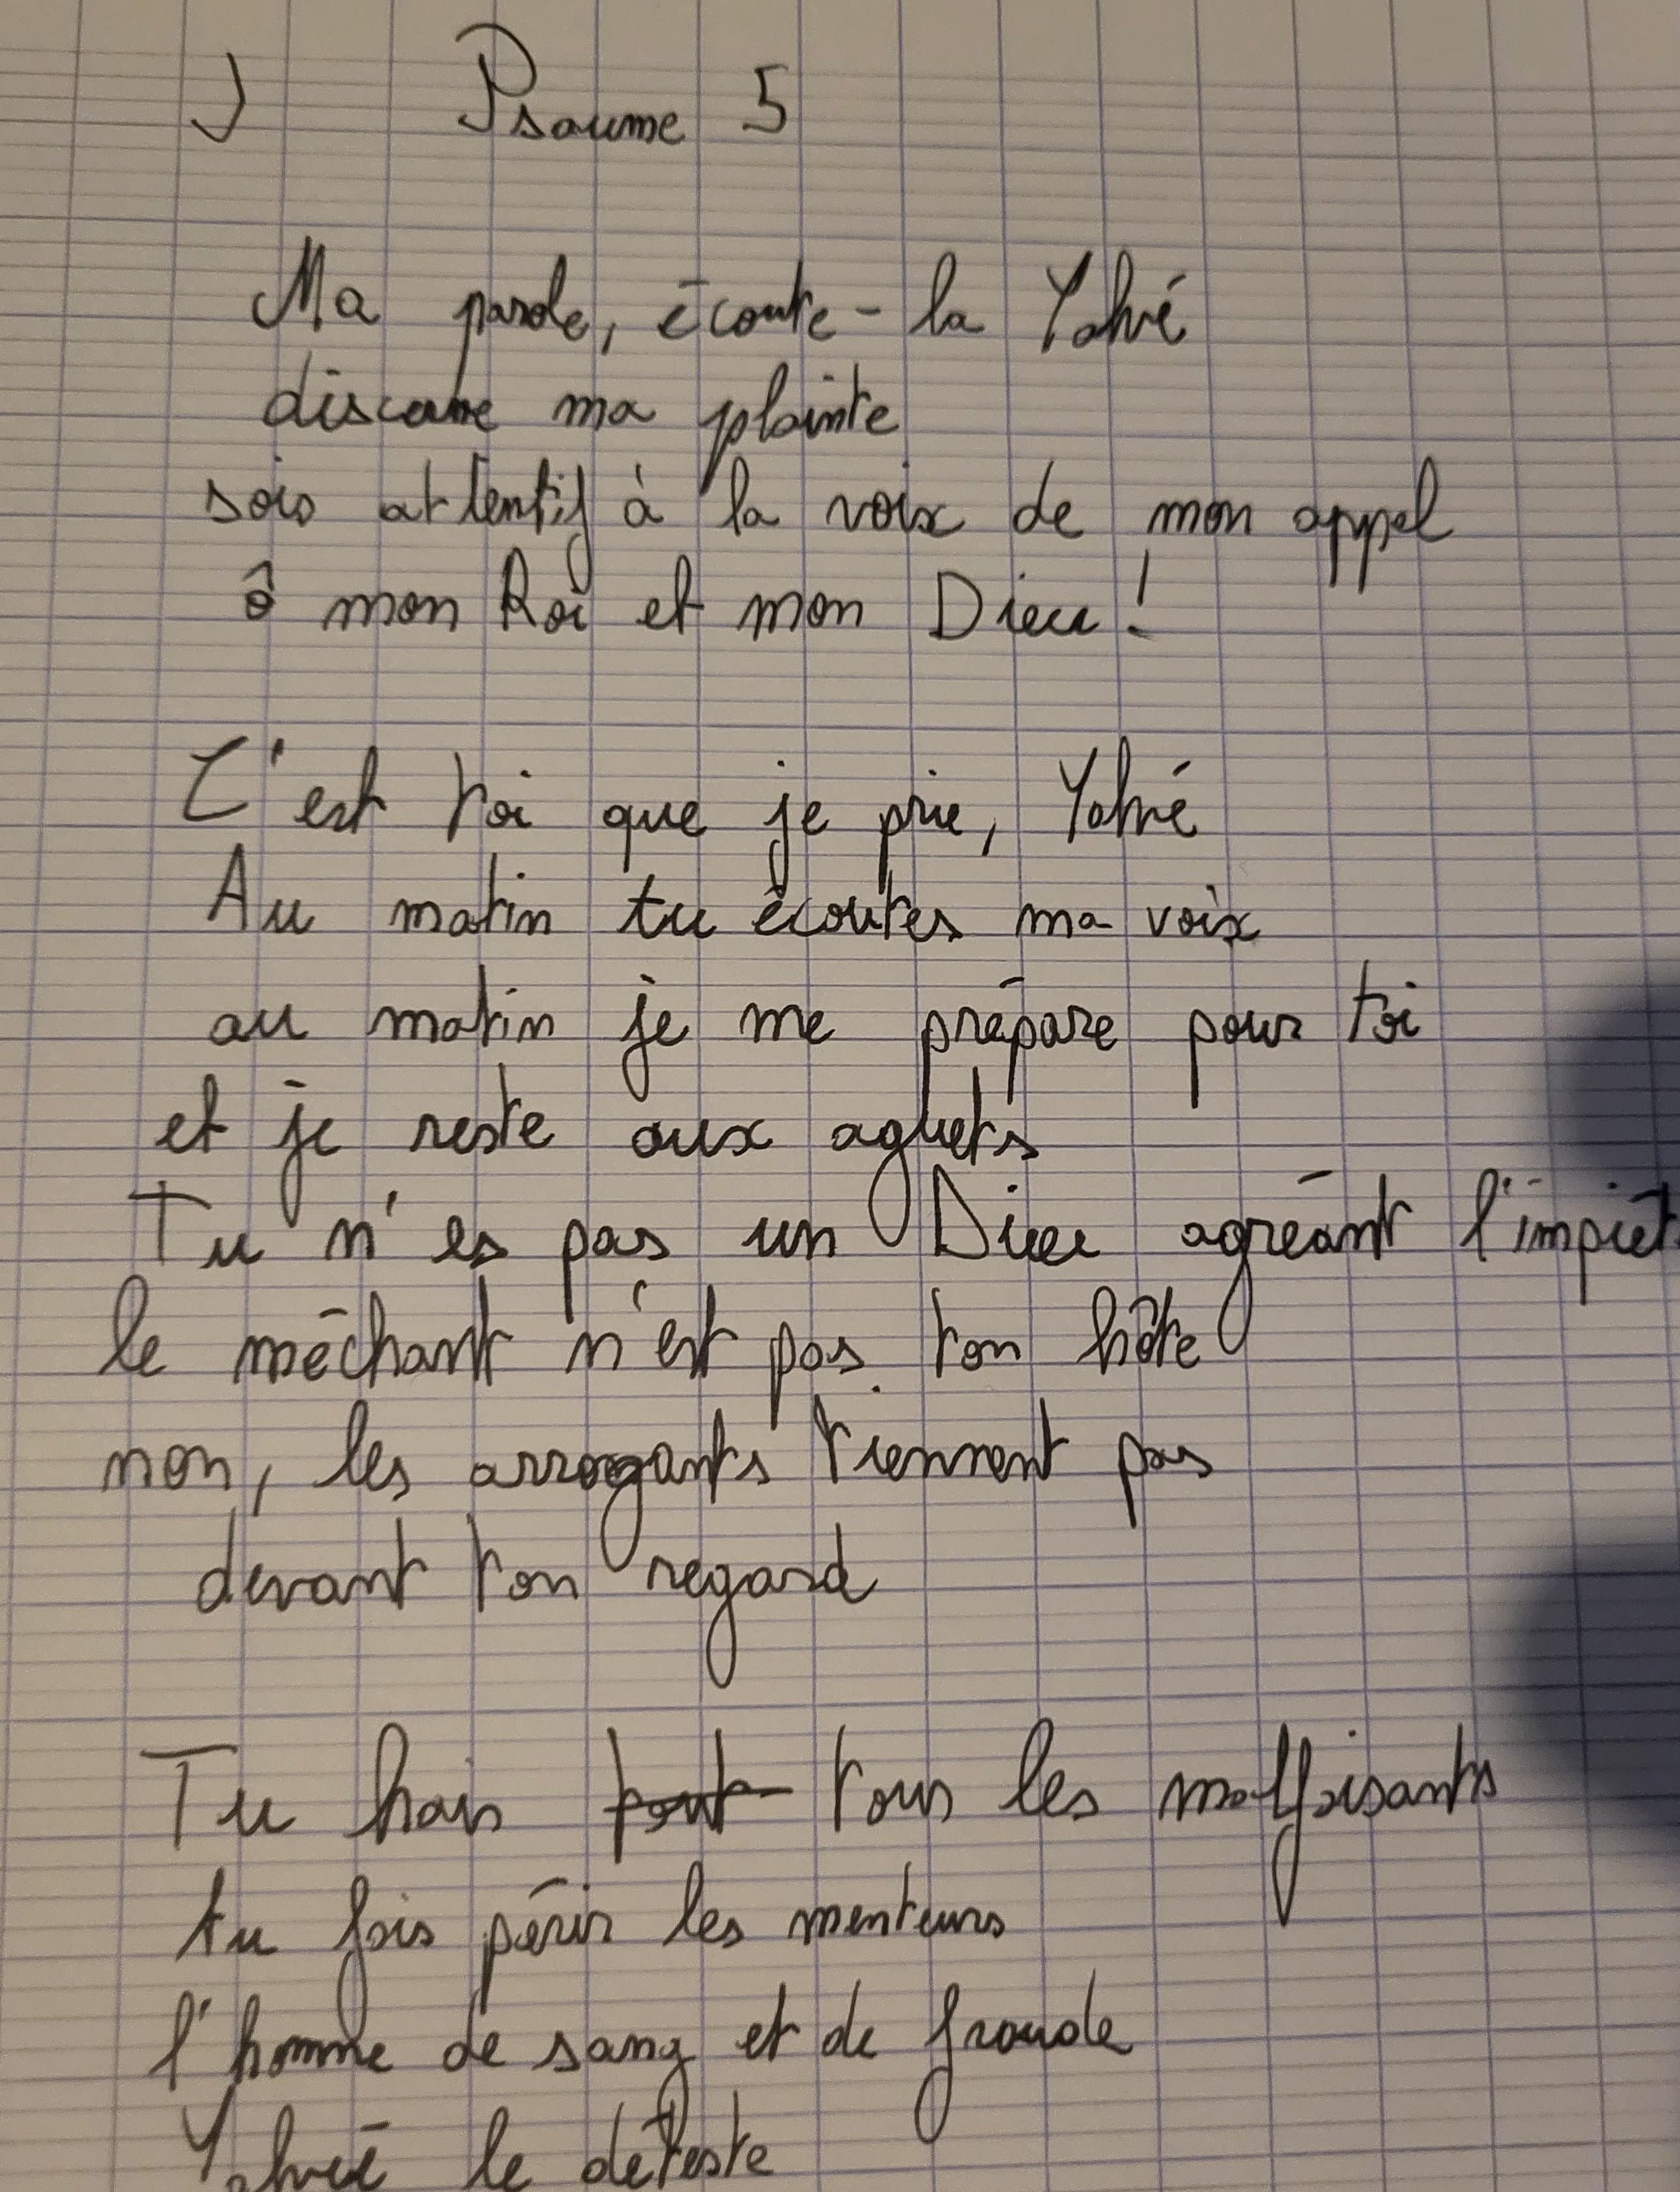 Psaume 5
Ma parole, écoute-la Yahvé
discerne ma plainte
sois attentif à la voix de mon appel
ô mon Roi et mon Dieu !
C'est toi que je prie, Yahvé
Au matin tu écoutes ma voix
au matin je me prépare pour toi
et je reste aux aguets
Tu n'es pas un Dieu agréant l'impiét
le méchant n'est pas ton hôte
non, les arrogants tiennent pas
devant ton regard
Tu hais tout tous les malfaisants
tu fais périr les menteurs
l'homme de sang et de fraude
Yahvé le déteste